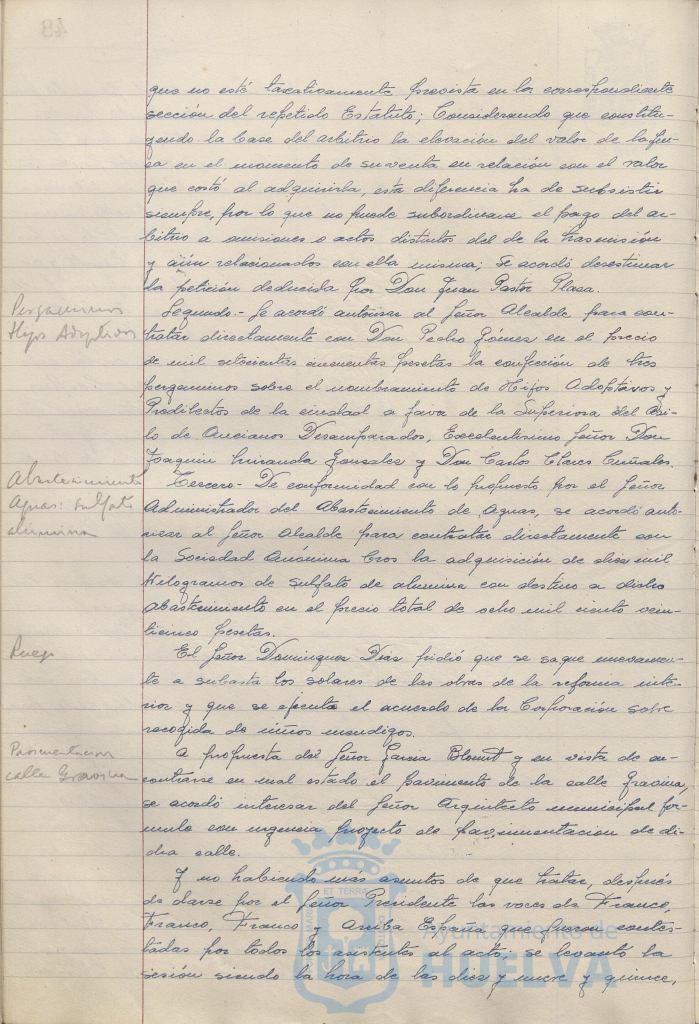 que no esté taxativamente prevista en la correspondiente
sección del repetido Estatuto; Considerando que constitu-
yendo la base del arbitrio la elevación del valor de la fin-
ca en el momento de su venta en relación con el valor
que costó al adquirirla, esta diferencia ha de subsistir
siempre, por lo que no puede subordinarse el pago del ar-
bitrio a omisiones o actos distintos del de la trasmisión
y aún relacionarlos con ella misma; se acordó desestimar
la petición deducida por Don Juan Pastor Plasa.
Pergaminos
Hijos Adoptivos
Segundo.- Se acordó autorizar al Señor Alcalde para con-
tratar directamente con Don Pedro Gómez en el precio
de mil setecientas cincuenta pesetas la confección de tres
pergaminos sobre el nombramiento de Hijos Adoptivos y
Predilectos de la ciudad a favor de la Superiora del Asi-
lo de Ancianos Desamparados, Excelentísimo Señor Don
Joaquin Miranda Gonzalez y Don Carlos
Abastecimiento
Aguas: sulfato
alumina
Tercero- De conformidad con lo propuesto por el Señor
Administrador del Abastecimiento de Aguas, se acordó auto-
rizar al Señor Alcalde para contratar directamente con
la Sociedad Anónima Cros la adquisición de diez mil
Kilogramos de sulfato de alumina con destino a dicho
Abastecimiento en el precio total de ocho mil ciento vein-
ticinco pesetas.
Ruego
El Señor Dominguez Diaz pidió que se saque nuevamen-
te a subasta los solares de las obras de la reforma inte-
rior y que se ejecute el acuerdo de la Corporación sobre
recogida de niños mendigos.
Pavimentacion
calle Gravina
A propuesta del Señor Garcia y en vista de en-
contrarse en mal estado el pavimento de la calle Gravina,
se acordó interesar del Señor Arquitecto municipal for-
mule con urgencia proyecto de pavimentacion de di-
cha calle.
Y no habiendo más asuntos de que tratar, después
de darse por el Señor Presidente las voces de Franco,
Franco, Franco y Arriba España que fueron contes-
tadas por todos los asistentes al acto, se levantó la
sesión siendo la hora de las diez y nueve y quince,
Ayuntamiento de
HUELVA